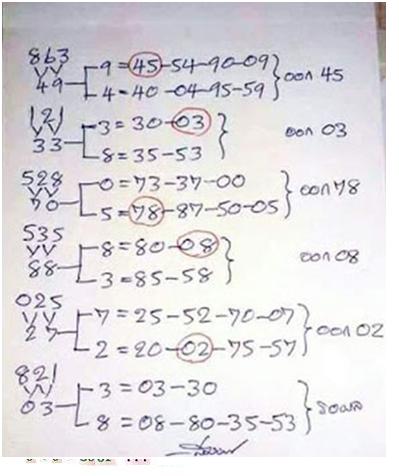 863
9 = 45-54-90-09
49
4 = 40-04-95-59
ออก 45
121
3 = 30-03
33
8 = 35-53
ออก 03
528
0 = 73-37-00
70
5 = 78-87-50-05
ออก 78
535
8 = 80-08
88
3 = 85-58
ออก 08
025
7 = 25-52-70-07
27
2 = 20-02-75-57
ออก 02
821
3 = 03-30
03
8 = 08-80-35-53
รอผล